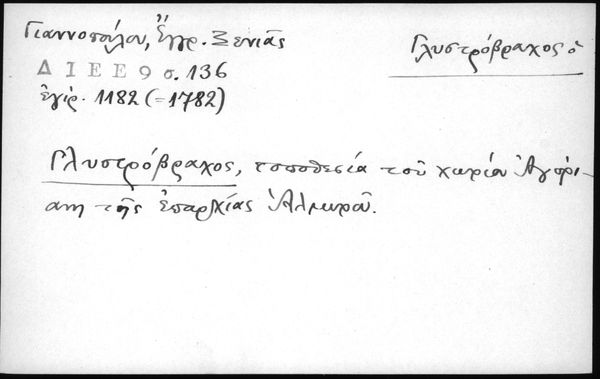 Γιαννοπούλου, Ἔγγρ. Ξενιᾶς
Γλυστρόβραχος ὁ
ΔΙΕΕ 9 σ. 136
ἐγίρ. 1182 (=1782)
Γλυστρόβραχος, τοποθεσία τοῦ χωρίου Ἀγόρι-
ανη τῆς ἐπαρχίας Ἁλμυροῦ.